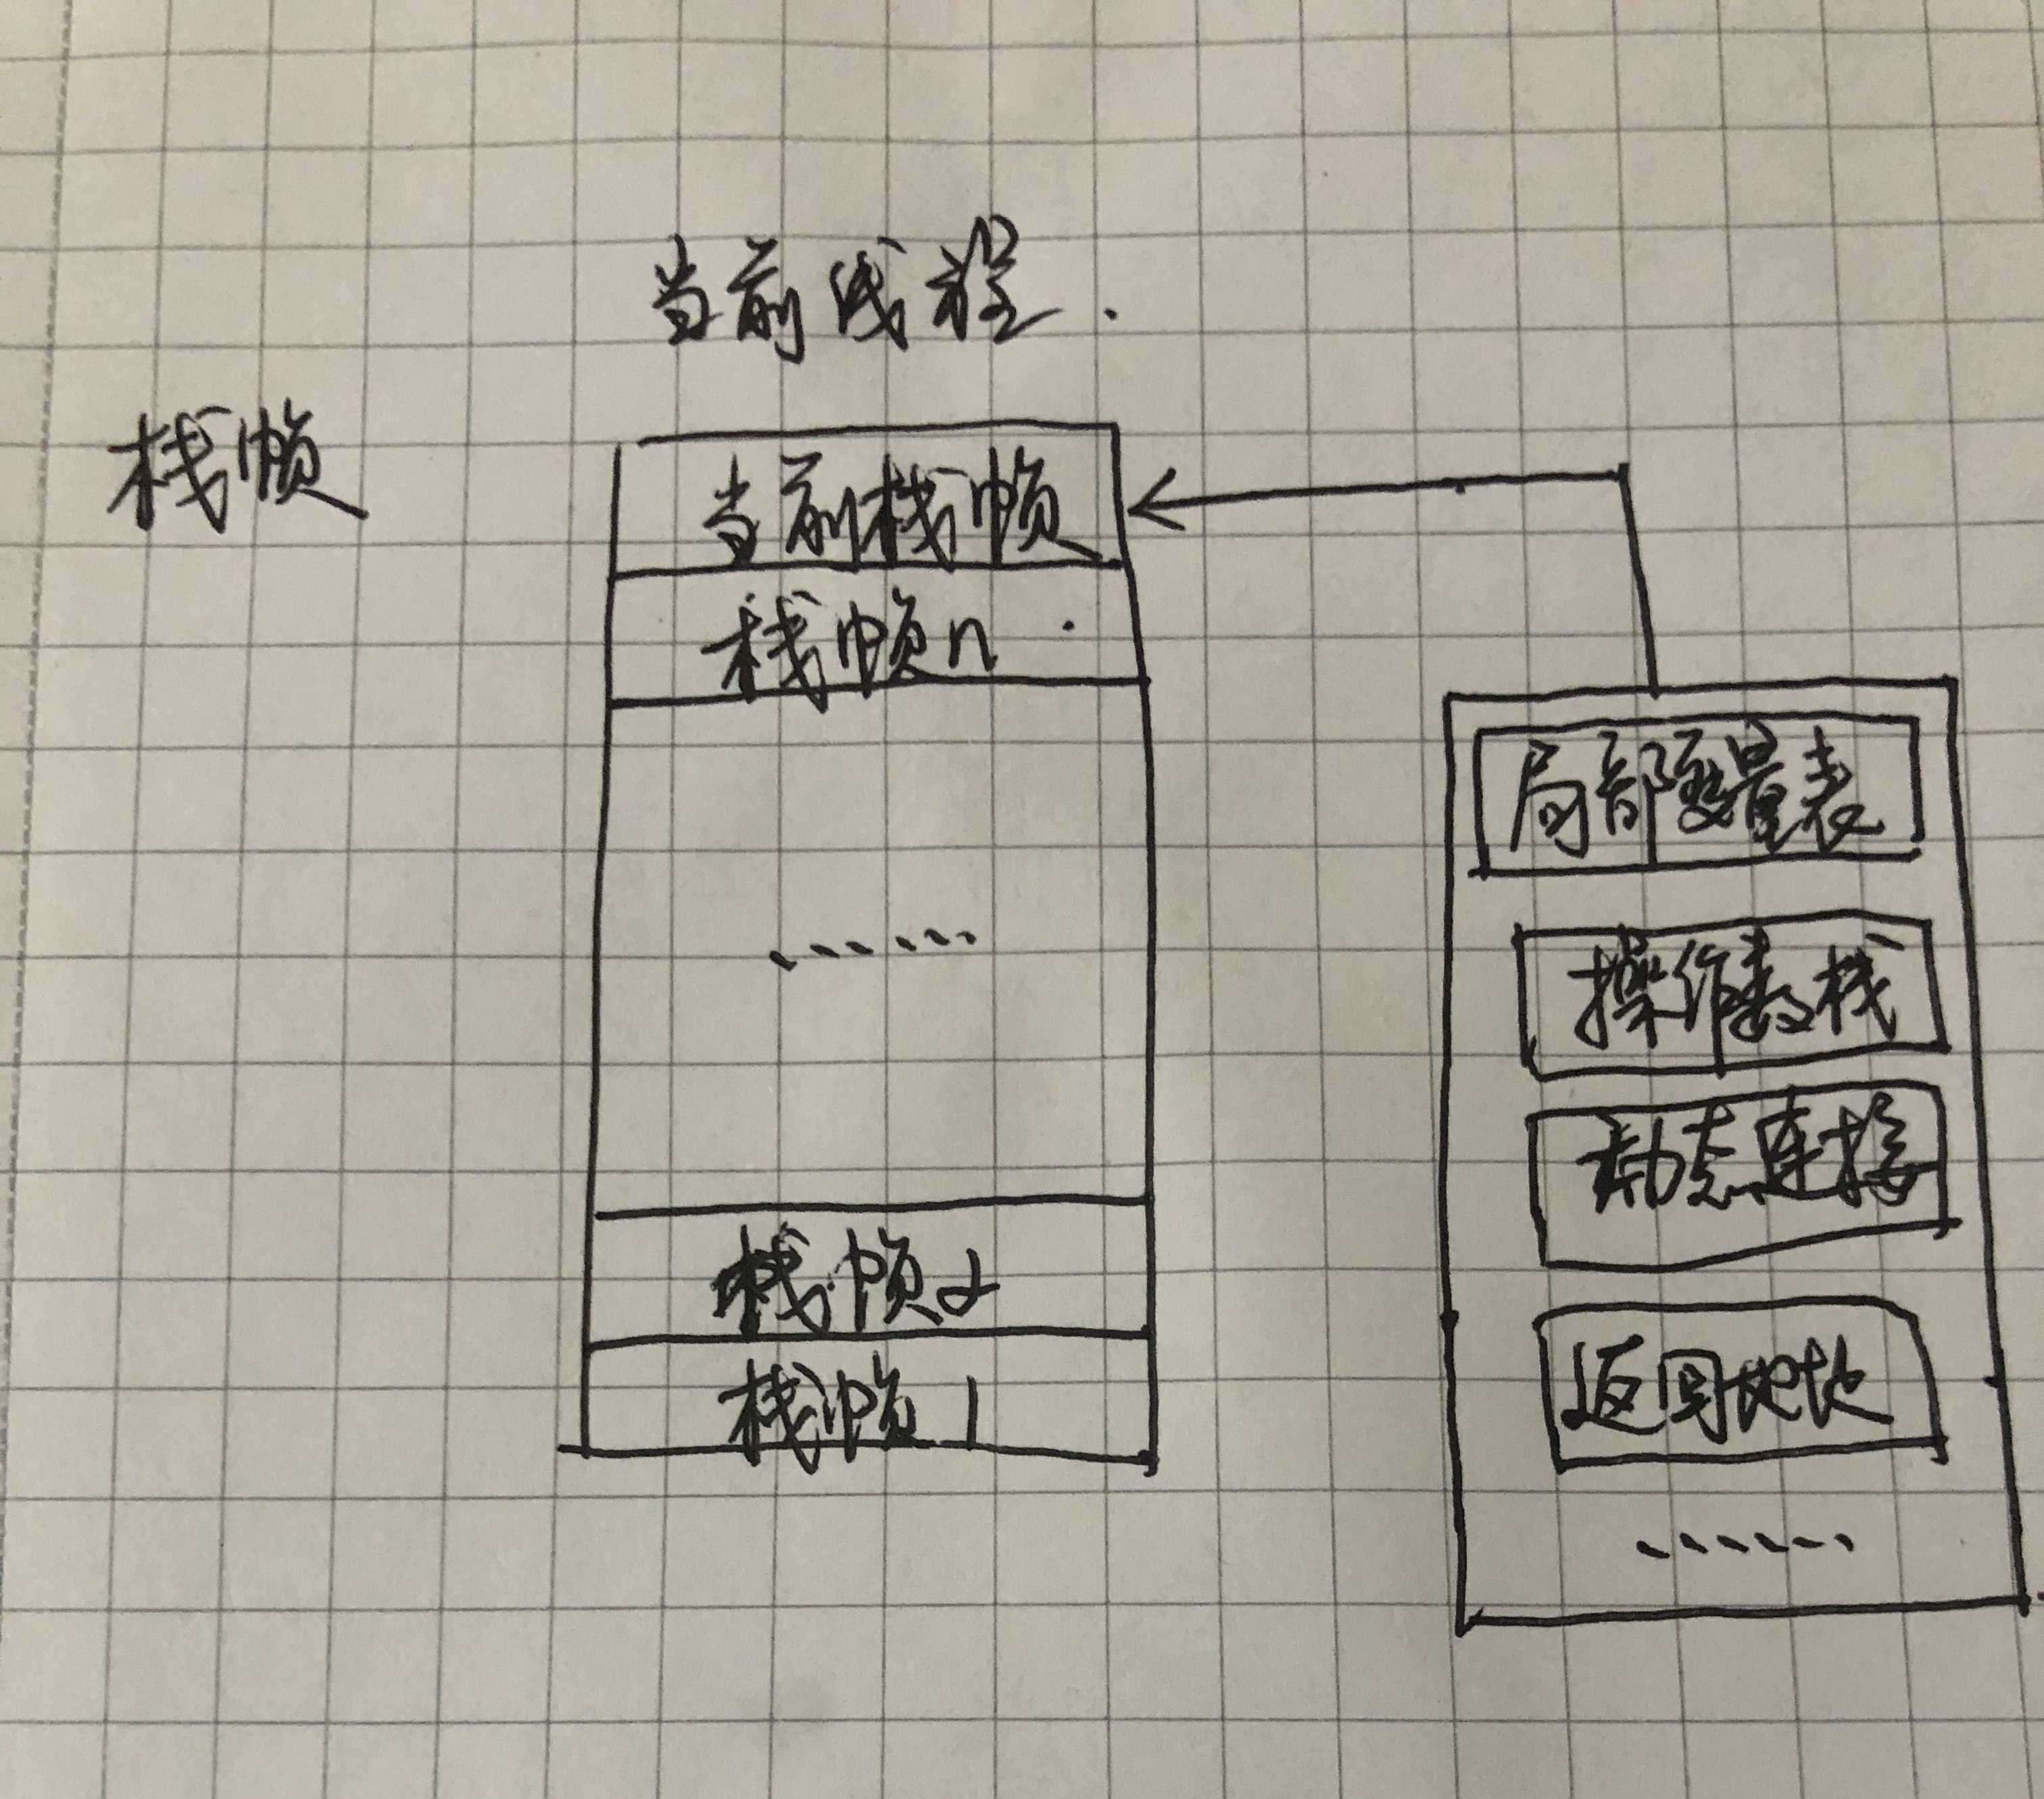 当前线程.
栈帧
当前栈帧
栈帧n
……
栈帧2
栈帧1
局部变量表
操作数栈
动态连接
返回地址
……